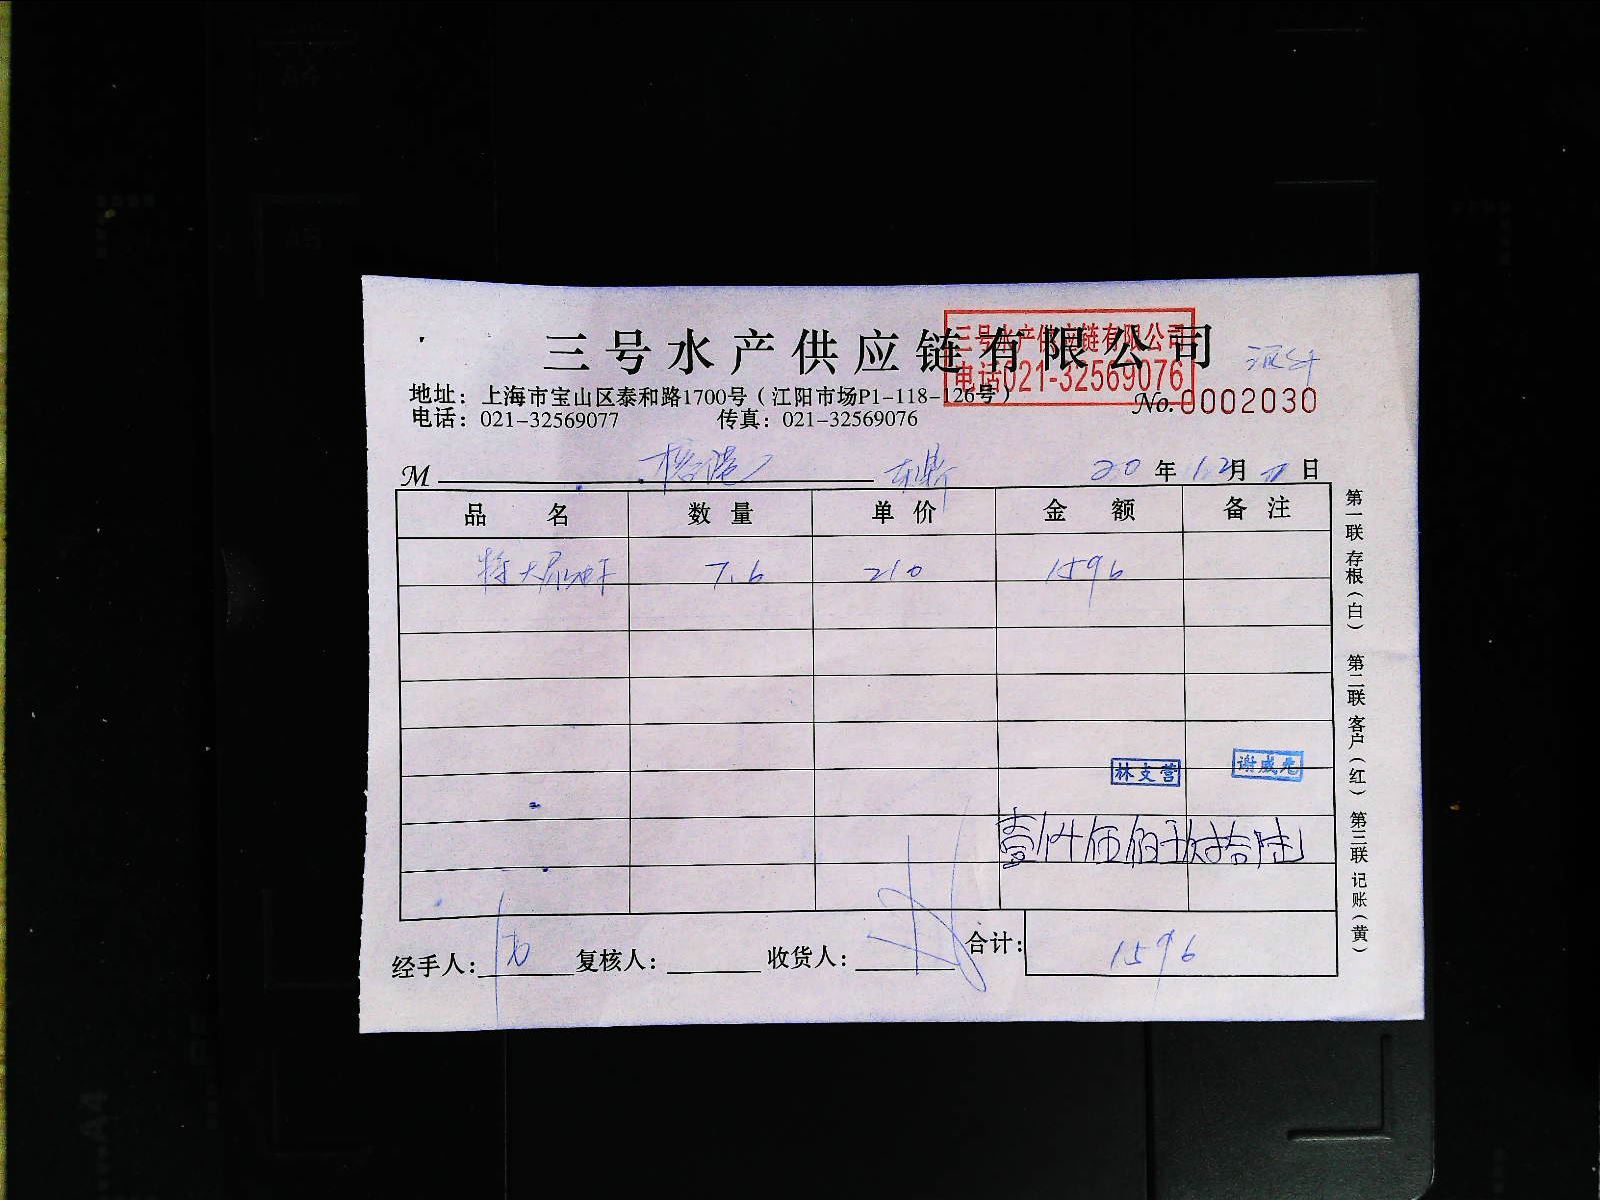 三号水产供应链有限公司
三号水产供应链有限公司
电话021-32569076
地址：上海市宝山区泰和路1700号（江阳市场P1-118-126号）
No.0002030
电话：021-32569077 传真：021-32569076
M 20年12月 日
品 名 数 量 单 价 金 额 备 注
特大 虾 7.6 210 1596
林支营 谢威
壹仟伍佰玖拾陆
经手人： 复核人： 收货人： 合计： 1596
第一联 存根（白） 第二联 客户（红） 第三联 记账（黄）
A4